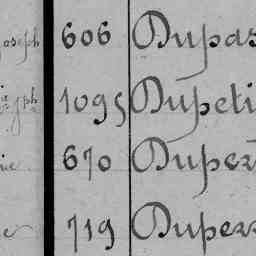 oseph 606 Dupas
jph 1095 Dupeti
670 Duper
719 Dupers